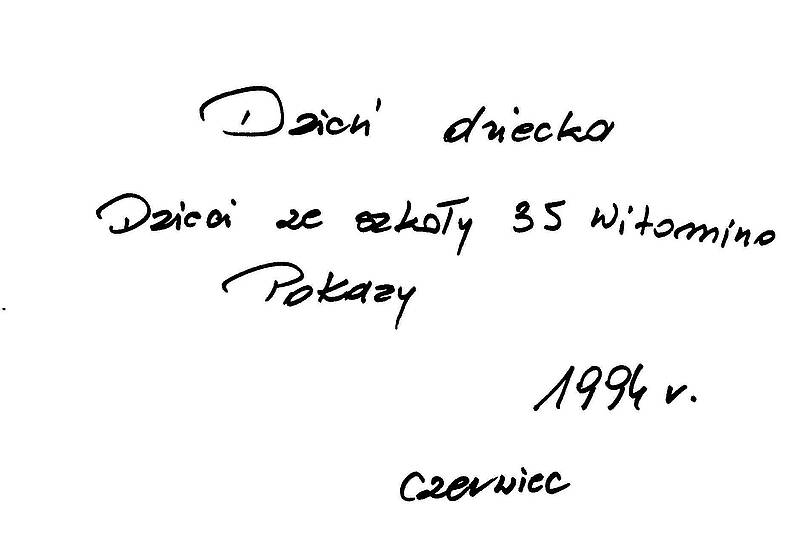 Dzień dziecka
Dzieci ze szkoły 35 Witomino
Pokazy
1994 r.
czerwiec